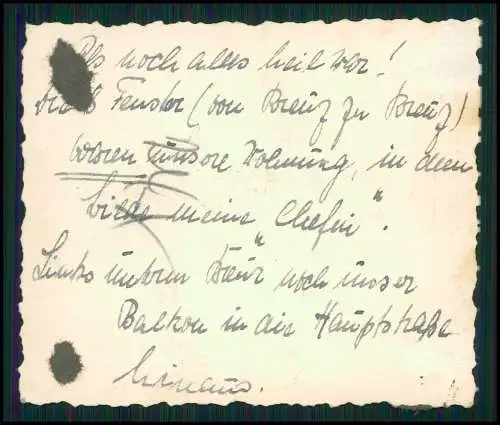 Als noch alles heil war!
Fenster (von Kreuz zu Kreuz)
waren unsere Wohnung, in dem
Bilde meine „Chefin“.
Links unterm Kreuz noch unser
Balkon in die Hauptstraße
hinaus.